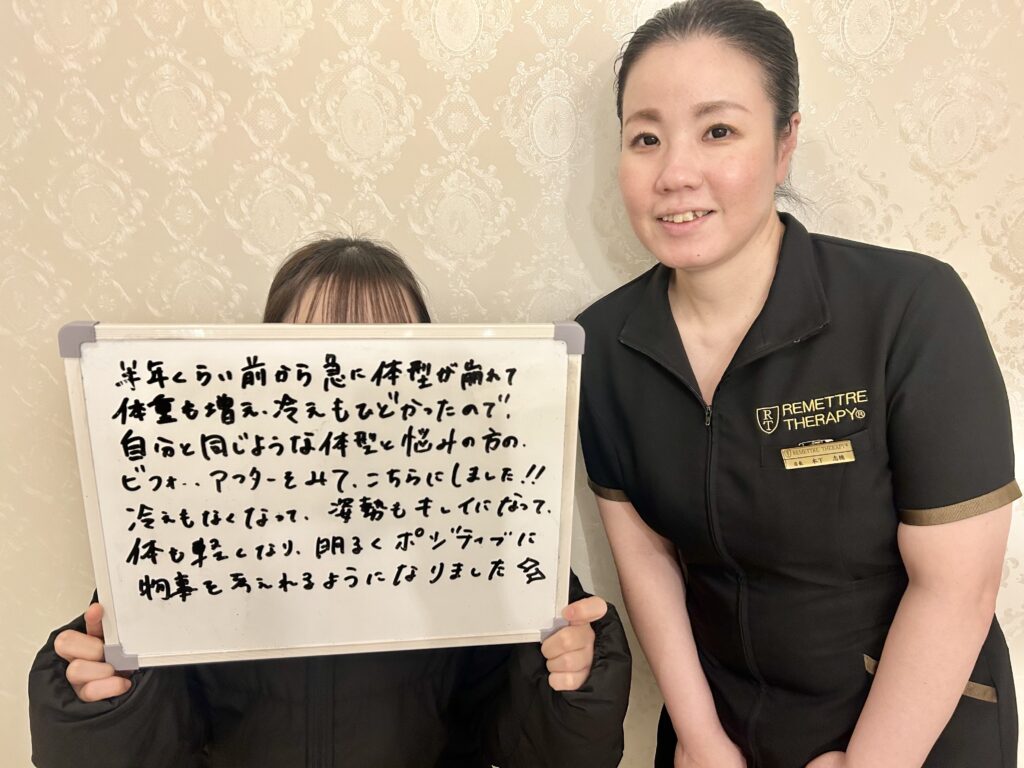 半年くらい前から急に体型が崩れて
体重も増え、冷えもひどかったので、
自分と同じような体型と悩みの方の、
ビフォー、アフターをみて、こちらにしました!!
冷えもなくなって、姿勢もキレイになって、
体も軽くなり、明るくポジティブに
物事を考えれるようになりました
REMETTRE
THERAPY®
RT
REMETTRE THERAPY
木下